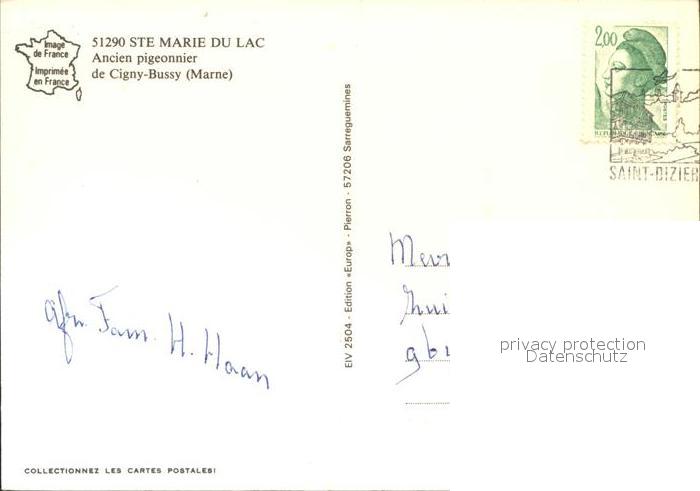 Image
de France
Imprimée
en France
51290 STE MARIE DU LAC
Ancien pigeonnier
de Cigny-Bussy (Marne)
EIV 2504 - Edition «Europ» - Pierron - 57206 Sarreguemines
2,00
SAINT-DIZIER
Afz. Fam. H. Haan
privacy protection
Datenschutz
COLLECTIONNEZ LES CARTES POSTALES!